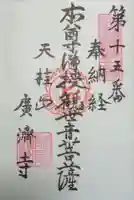 第十五番
奉納経
本尊佛契観世音菩薩
天桂山
廣濟寺